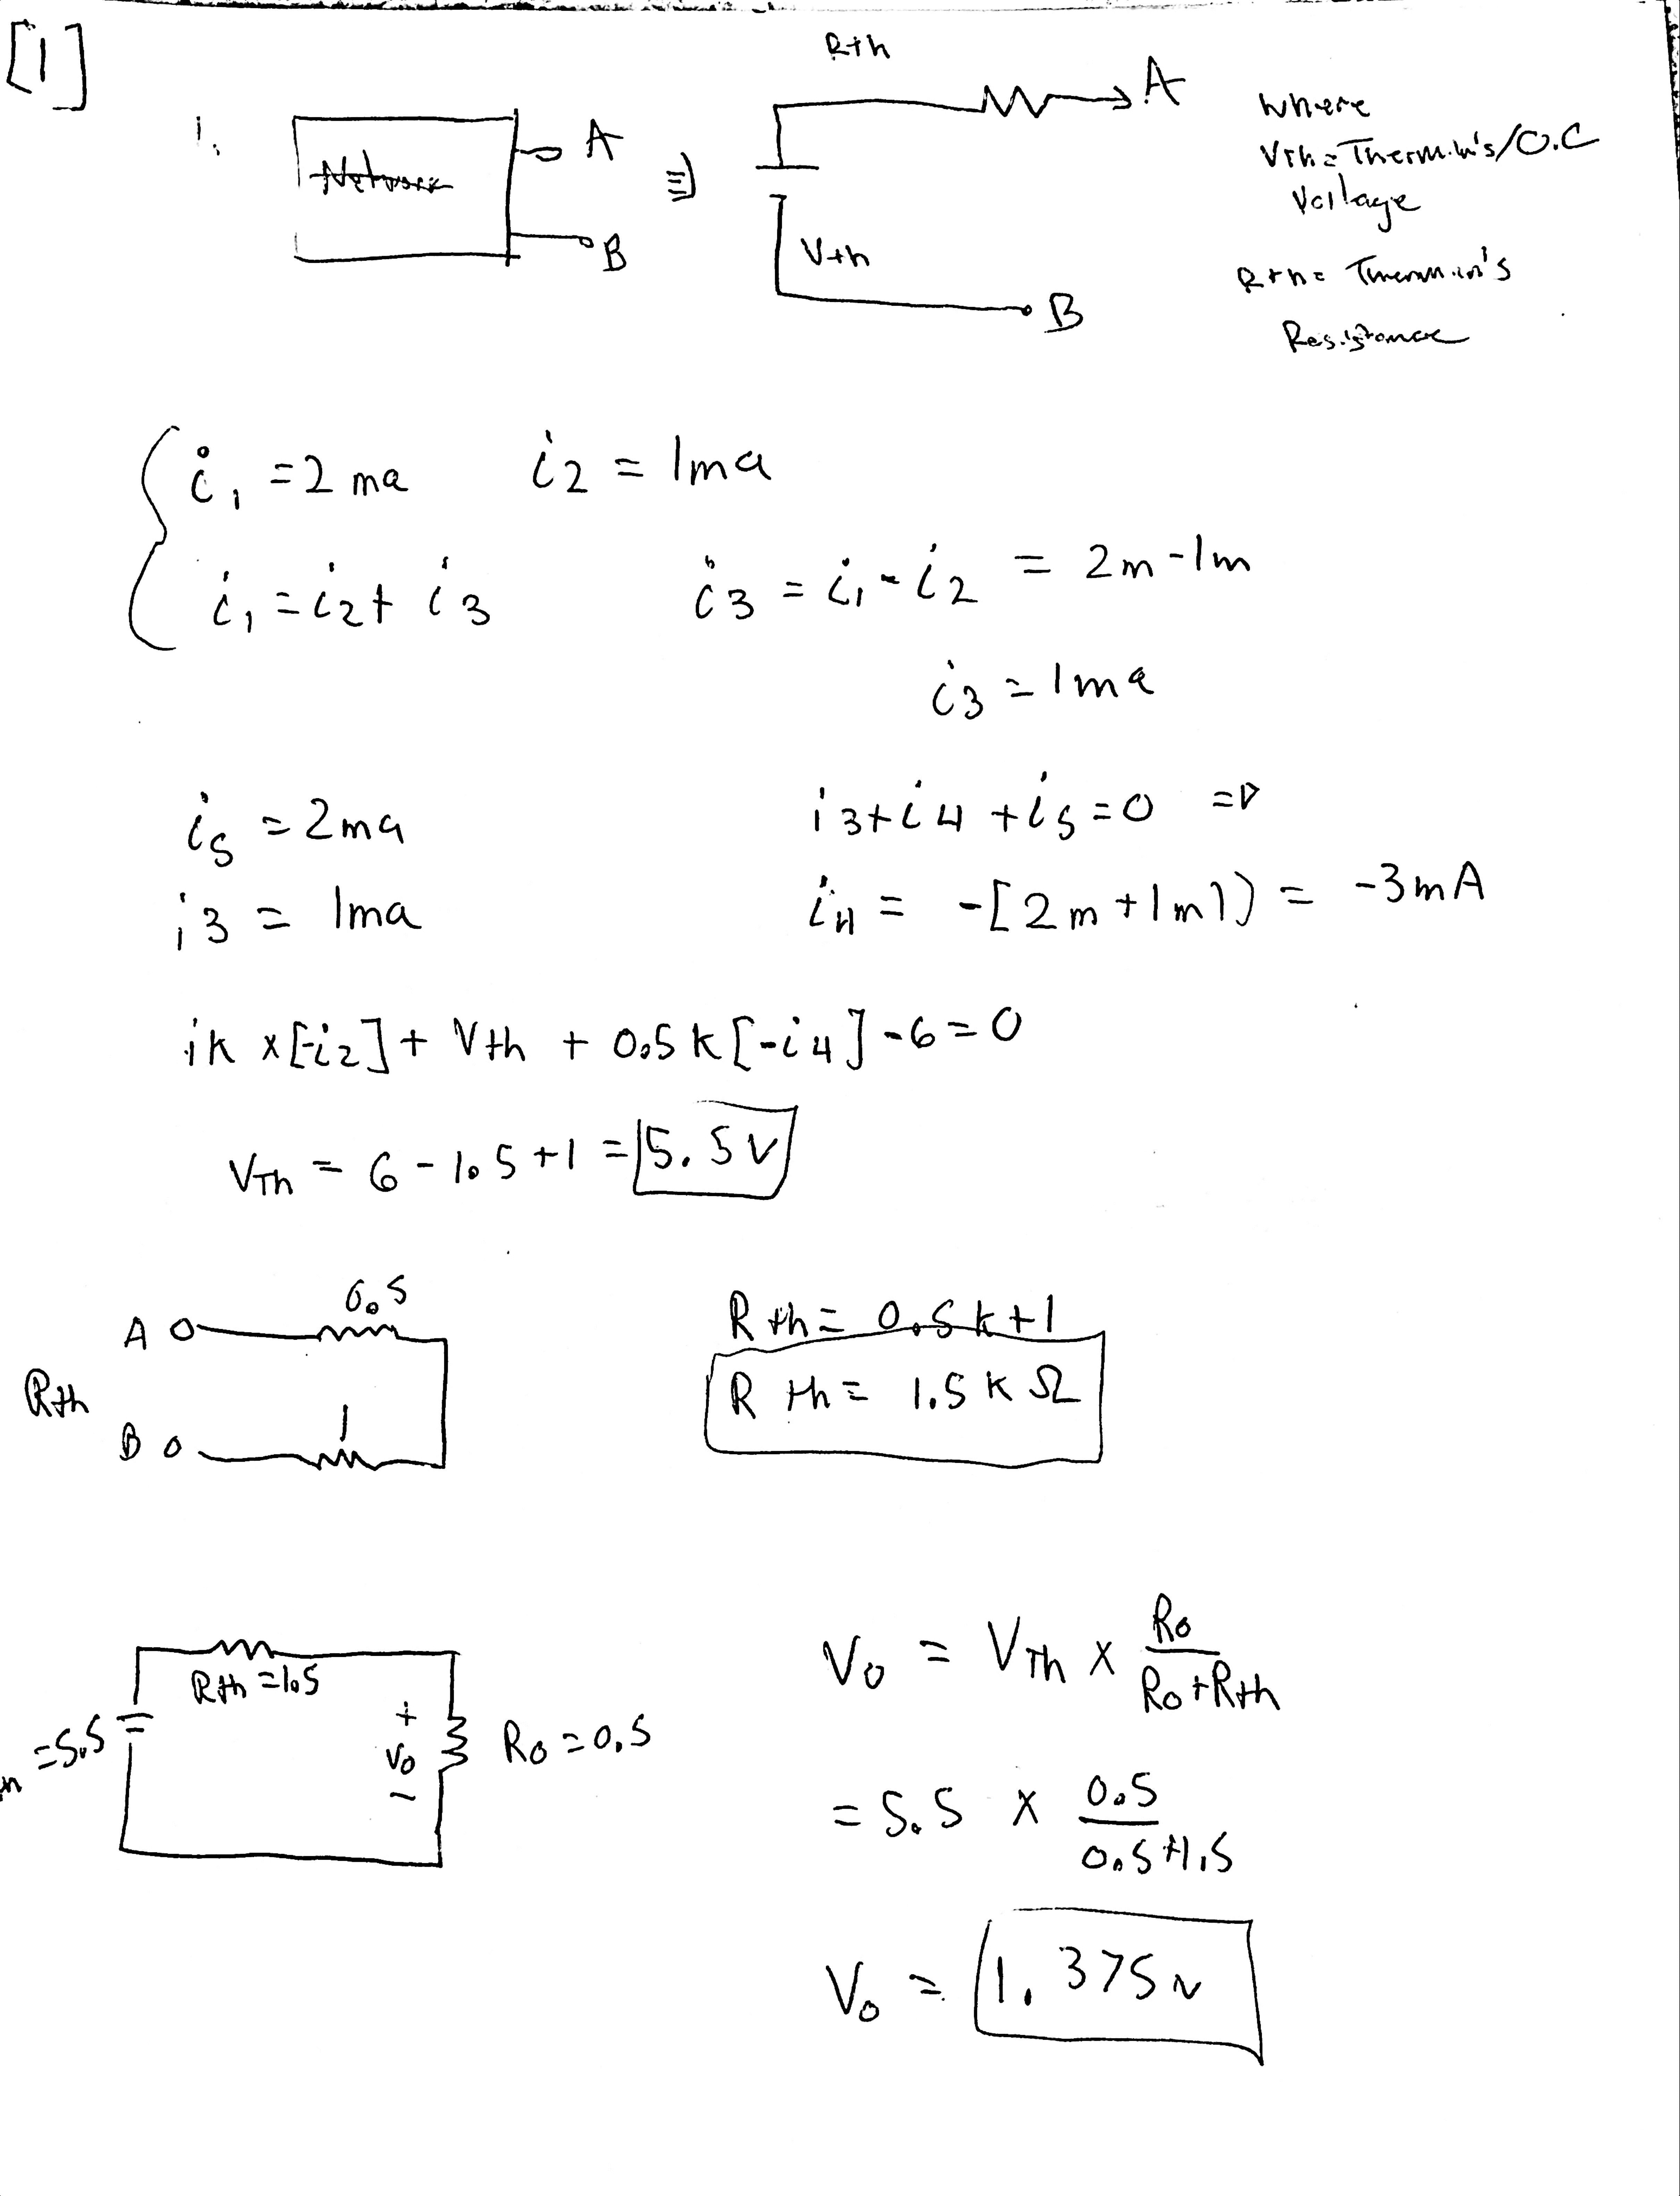 [1]
Rth
1.
Network
A
B
≡)
A
Vth
B
where
Vth = Thermin's/O.C
Voltage
Rth = Thermin's
Resistance
i1 = 2 ma i2 = 1ma
i1 = i2 + i3 i3 = i1 - i2 = 2m - 1m
i3 = 1ma
i5 = 2ma i3 + i4 + i5 = 0 =>
i3 = 1ma i4 = -[2m + 1m]) = -3mA
ik x [-i2] + Vth + 0.5k [-i4] - 6 = 0
VTh = 6 - 1.5 + 1 = 5.5V
0.5
A
Rth
B
1
Rth = 0.5k + 1
Rth = 1.5 k Ω
Rth = 1.5
= 5.5
+
Vo
-
Ro = 0.5
Vo = VTh x Ro / Ro + Rth
= 5.5 x 0.5 / 0.5 + 1.5
Vo = 1.375 v